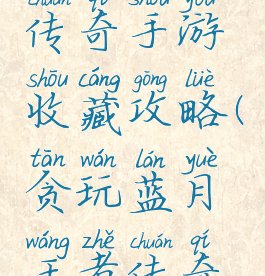 chuán qí shǒu yóu
传奇手游
shōu cáng gōng lüè
收藏攻略(
tān wán lán yuè
贪玩蓝月
wáng zhě chuán qí
王者传奇